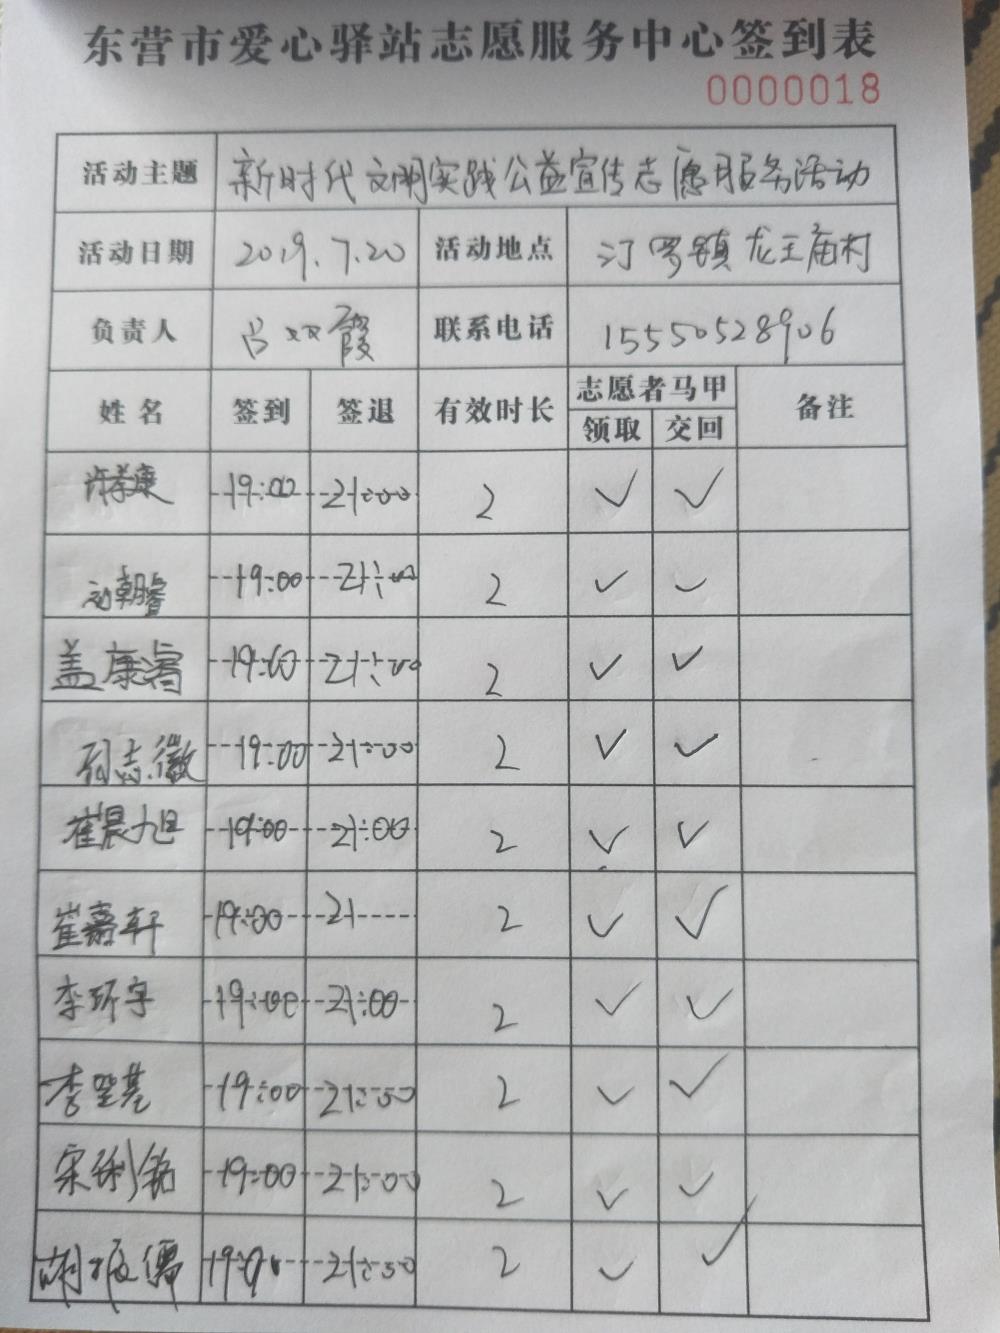 东营市爱心驿站志愿服务中心签到表
0000018
活动主题 新时代文明实践公益宣传志愿服务活动
活动日期 2019.7.20 活动地点 汀罗镇龙王庙村
负责人 霞 联系电话 15550528906
姓名 签到 签退 有效时长 志愿者马甲 备注
领取 交回
许孝康 19:00 21:00 2 ✓ ✓
朝睿 19:00 21:00 2 ✓ ✓
盖康睿 19:00 21:00 2 ✓ ✓
志徽 19:00 21:00 2 ✓ ✓
崔晨旭 19:00 21:00 2 ✓ ✓
崔嘉轩 19:00 21 2 ✓ ✓
李环宇 19:00 21:00 2 ✓ ✓
李坚基 19:00 21:50 2 ✓ ✓
宋 铭 19:00 21:00 2 ✓ ✓
胡振儒 19:0 21:50 2 ✓ ✓